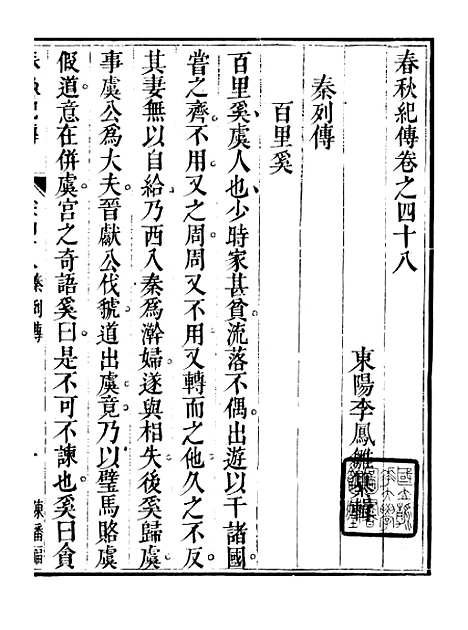 春秋紀傳卷之四十八
東陽李鳳雛輯
秦列傳
百里奚
百里奚虞人也少時家甚貧流落不偶出遊以干諸國
嘗之齊不用又之周周又不用又轉而之他久之不反
其妻無以自給乃西入秦爲澣婦遂與相失後奚歸虞
事虞公爲大夫晉獻公伐虢道出虞竟乃以璧馬賂虞
假道意在併虞宮之奇語奚曰是不可不諫也奚曰貪
秦列傳